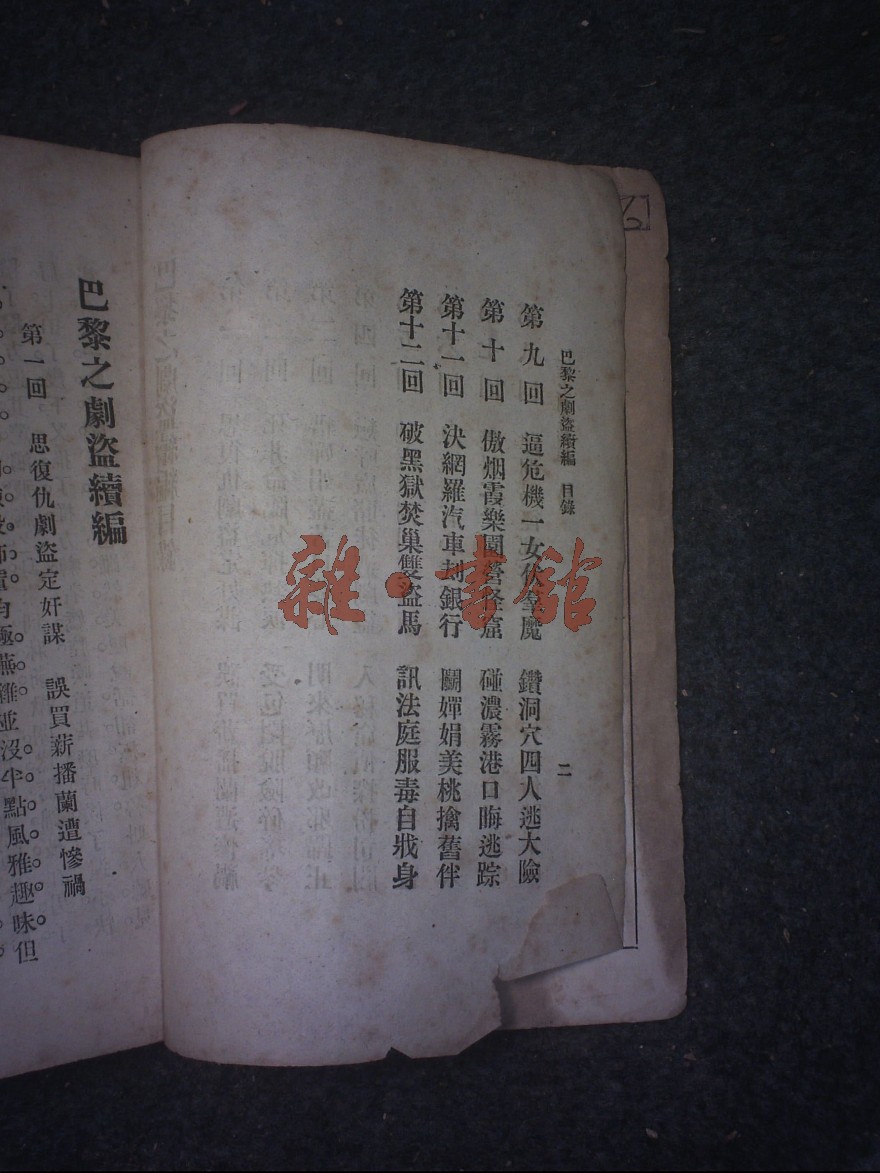 巴黎之劇盜續編 目錄
二
第九回 逼危機一女伏羣魔 鑽洞穴四人逃大險
第十回 傲烟霞樂園營怪窟 碰濃霧港口晦逃踪
第十一回 決網羅汽車刦銀行 鬭嬋娟美桃擒舊伴
第十二回 破黑獄焚巢雙盜馬 訊法庭服毒自戕身
雜·書館
巴黎之劇盜續編
第一回 思復仇劇盜定奸謀 誤買薪播蘭遭慘禍
極蕪雜並沒半點風雅趣味但